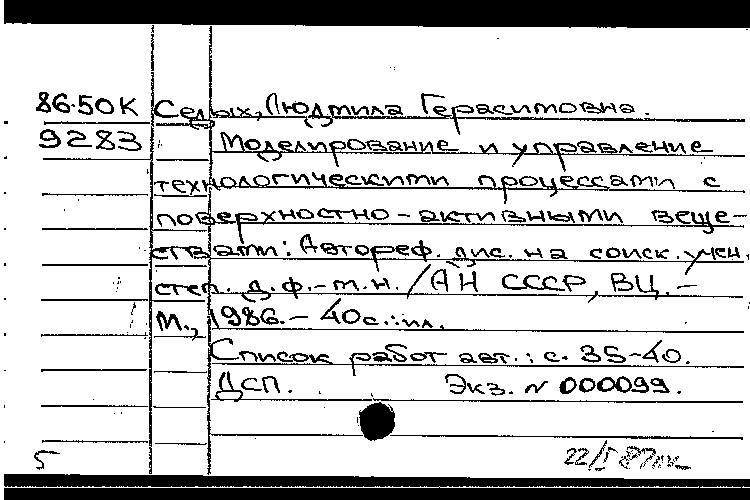 86.50К Седых, Людмила Герасимовна.
9283 Моделирование и управление
технологическими процессами с
поверхностно-активными веще-
ствами: Автореф. дис. на соиск. учен.
степ. д.ф.-м.н. / АН СССР, ВЦ. –
М., 1986. – 40с.: ил.
Список работ авт.: с. 35-40.
ДСП. Экз. № 000099.
5 22/I 87